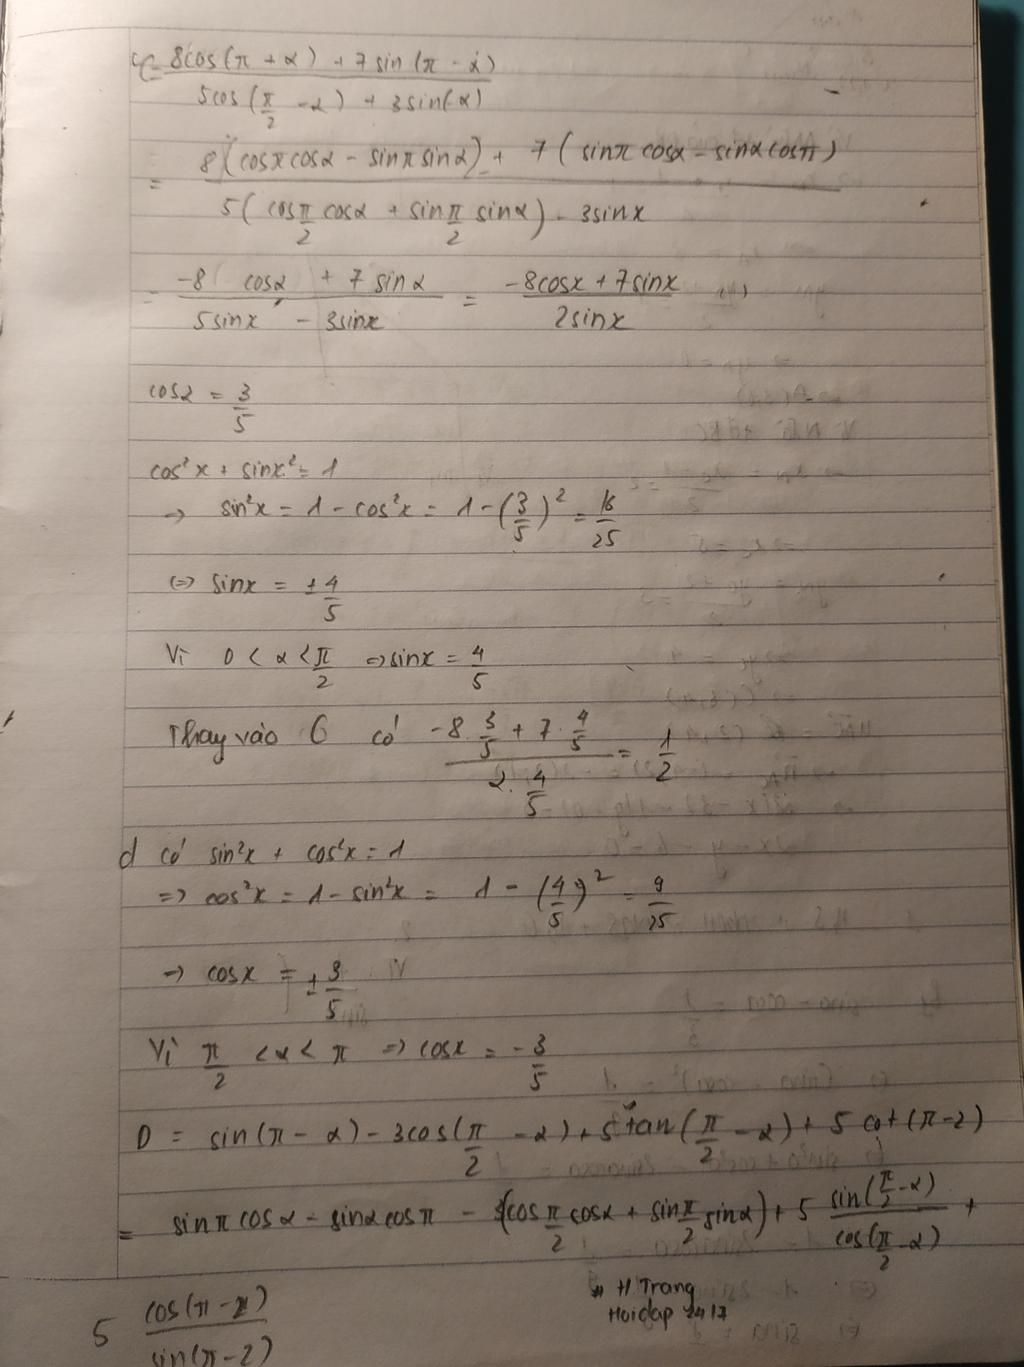 C = (8cos(π + α) + 7sin(π - α)) / (5cos(π/2 - α) + 3sin(-α))
= (8(cosπcosα - sinπsinα) + 7(sinπcosα - sinαcosπ)) / (5(cosπ/2 cosα + sinπ/2 sinα) - 3sinx)
= (-8cosα + 7sinα) / (5sinx - 3sinx) = (-8cosx + 7sinx) / (2sinx)
cosα = 3/5
cos²x + sinx² = 1
=> sin²x = 1 - cos²x = 1 - (3/5)² = 16/25
(=) sinx = ±4/5
Vì 0 < α < π/2 => sinx = 4/5
Thay vào C có (-8·3/5 + 7·4/5) / (2·4/5) = 1/2
d có sin²x + cos²x = 1
=> cos²x = 1 - sin²x = 1 - (4/5)² = 9/25
-> cosx = ±3/5
Vì π/2 < α < π => cosx = -3/5
D = sin(π - α) - 3cos(π/2 - α) + 5tan(π/2 - α) + 5cot(π - α)
= sinπcosα - sinαcosπ - 3(cosπ/2 cosα + sinπ/2 sinα) + 5 sin(π/2 - α)/cos(π/2 - α) +
5 cos(π - α)/sin(π - α)
H Trang
Hoidap 247